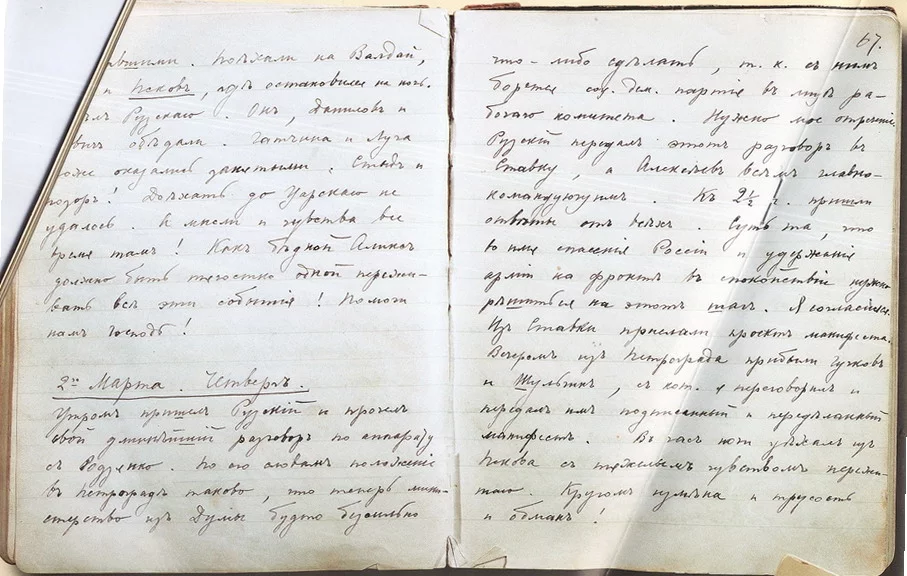 Поѣхали на Валдай,
и Псковъ, гдѣ остановился на ночь.
Рузскаго. Онъ, Даниловъ и
обѣдали. Гатчина и Луга
оказались занятыми. Стыдъ и
позоръ! Доѣхать до Царскаго не
удалось. А мысли и чувства все
время тамъ! Какъ бѣдной Аликсъ
должно быть тягостно одной пережи-
вать всѣ эти событія! Помоги
намъ Господь!
2го Марта. Четвергъ.
Утромъ пришелъ Рузскій и прочелъ
свой длиннѣйшій разговоръ по аппарату
съ Родзянко. По его словамъ положеніе
въ Петроградѣ таково, что теперь мини-
стерство изъ Думы будто безсильно
67.
что-либо сдѣлать, т. к. съ нимъ
борется соц. дем. партія въ лицѣ ра-
бочаго комитета. Нужно мое отреченіе.
Рузскій передалъ этотъ разговоръ въ
Ставку, а Алексѣевъ всѣмъ главно-
командующимъ. Къ 2½ ч. пришли
отвѣты отъ всѣхъ. Суть та, что
во имя спасенія Россіи и удержанія
арміи на фронтѣ въ спокойствіи нужно
рѣшиться на этотъ шагъ. Я согласился.
Изъ Ставки прислали проектъ манифеста.
Вечеромъ изъ Петрограда прибыли Гучковъ
и Шульгинъ, съ кот. я переговорилъ и
передалъ имъ подписанный и передѣланный
манифестъ. Въ часъ ночи уѣхалъ изъ
Пскова съ тяжелымъ чувствомъ пережи-
таго. Кругомъ измѣна и трусость
и обманъ!